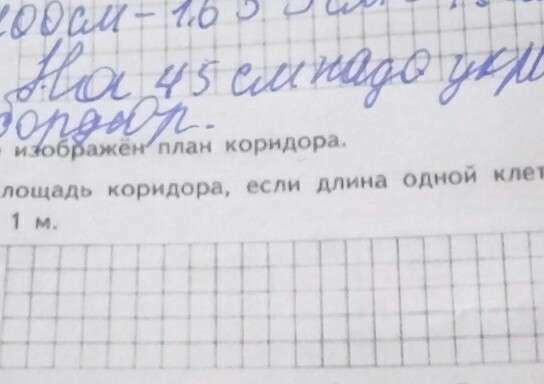 100см - 1.65
На 45 см надо укр
бордюр.
изображён план коридора.
лощадь коридора, если длина одной клет
1 м.